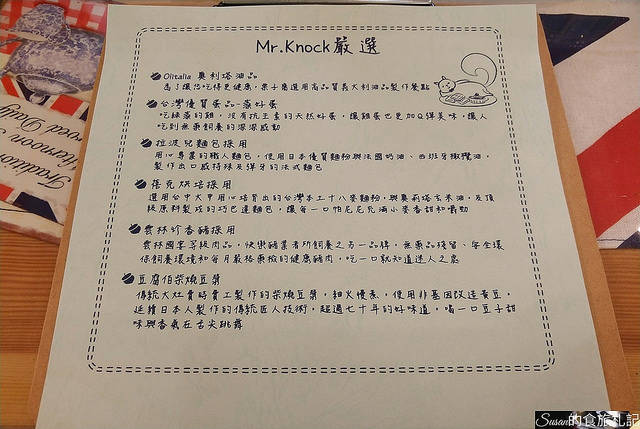 Mr.Knock嚴選
Olitalia 奧利塔油品
為了讓您吃得更健康,栗子喬選用高品質義大利油品製作餐點
台灣優質蛋品-蒸好蛋
吃綠藻的雞,沒有抗生素的天然好蛋,讓雞蛋也更加Q彈美味,讓人
吃到無藥飼養的深深感動
拉波兒麵包採用
用心專業的職人麵包,使用日本優質麵粉與法國奶油、西班牙橄欖油,
製作出口感特殊及彈牙的法式麵包
蓓克烘培採用
選用台中大甲用心培育出的台灣本土十八麥麵粉,與奧莉塔玄米油,及頂
級原料製成的巧巴達麵包,讓每一口帕尼尼充滿小麥香甜和嚼勁
雲林珍香豬採用
雲林國宰等級肉品,快樂豬業者所飼養之另一品牌,無藥品殘留、安全環
保飼養環境和每月嚴格藥檢的健康豬肉,吃一口就知道迷人之處
豆腐伯柴燒豆漿
傳統大灶實時實工製作的柴燒豆漿,細火慢煮,使用非基因改造黃豆,
延續日本人製作的傳統匠人技術,超過七十年的好味道,喝一口豆子甜
味與香氣在舌尖跳舞
Tradition
Afternoon
ved Daily
Susan的食旅札記